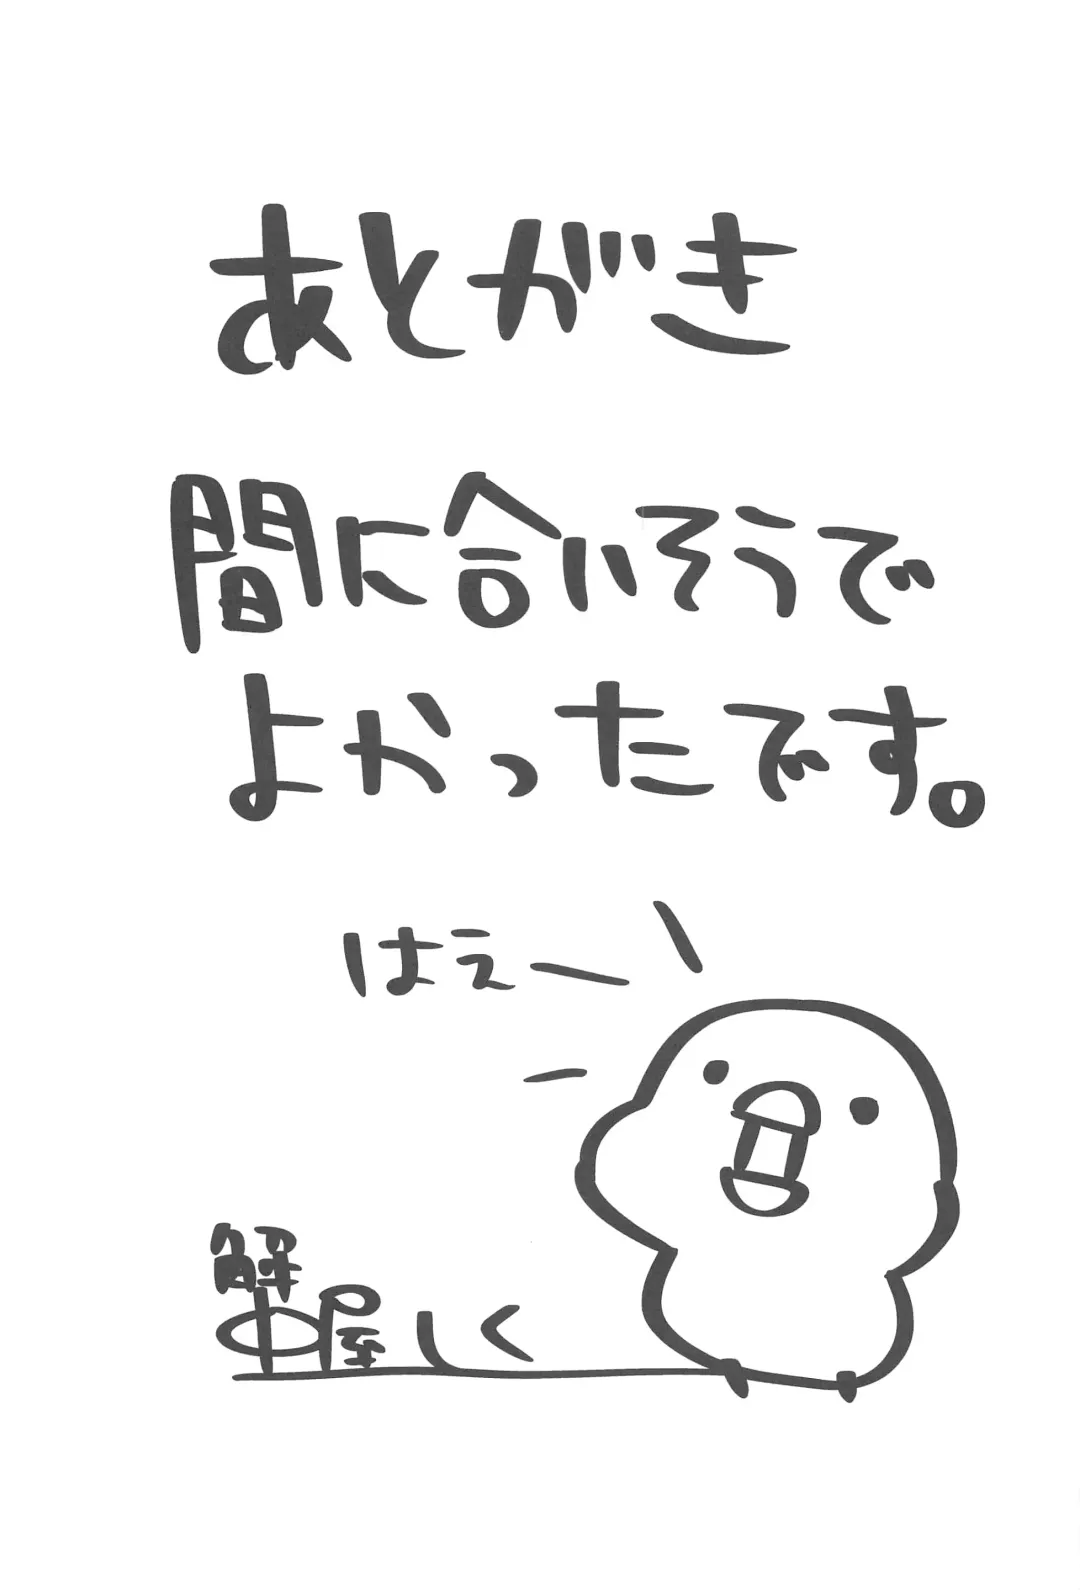 あとがき
間に合いそうで
よかったです。
はえー
中屋しく